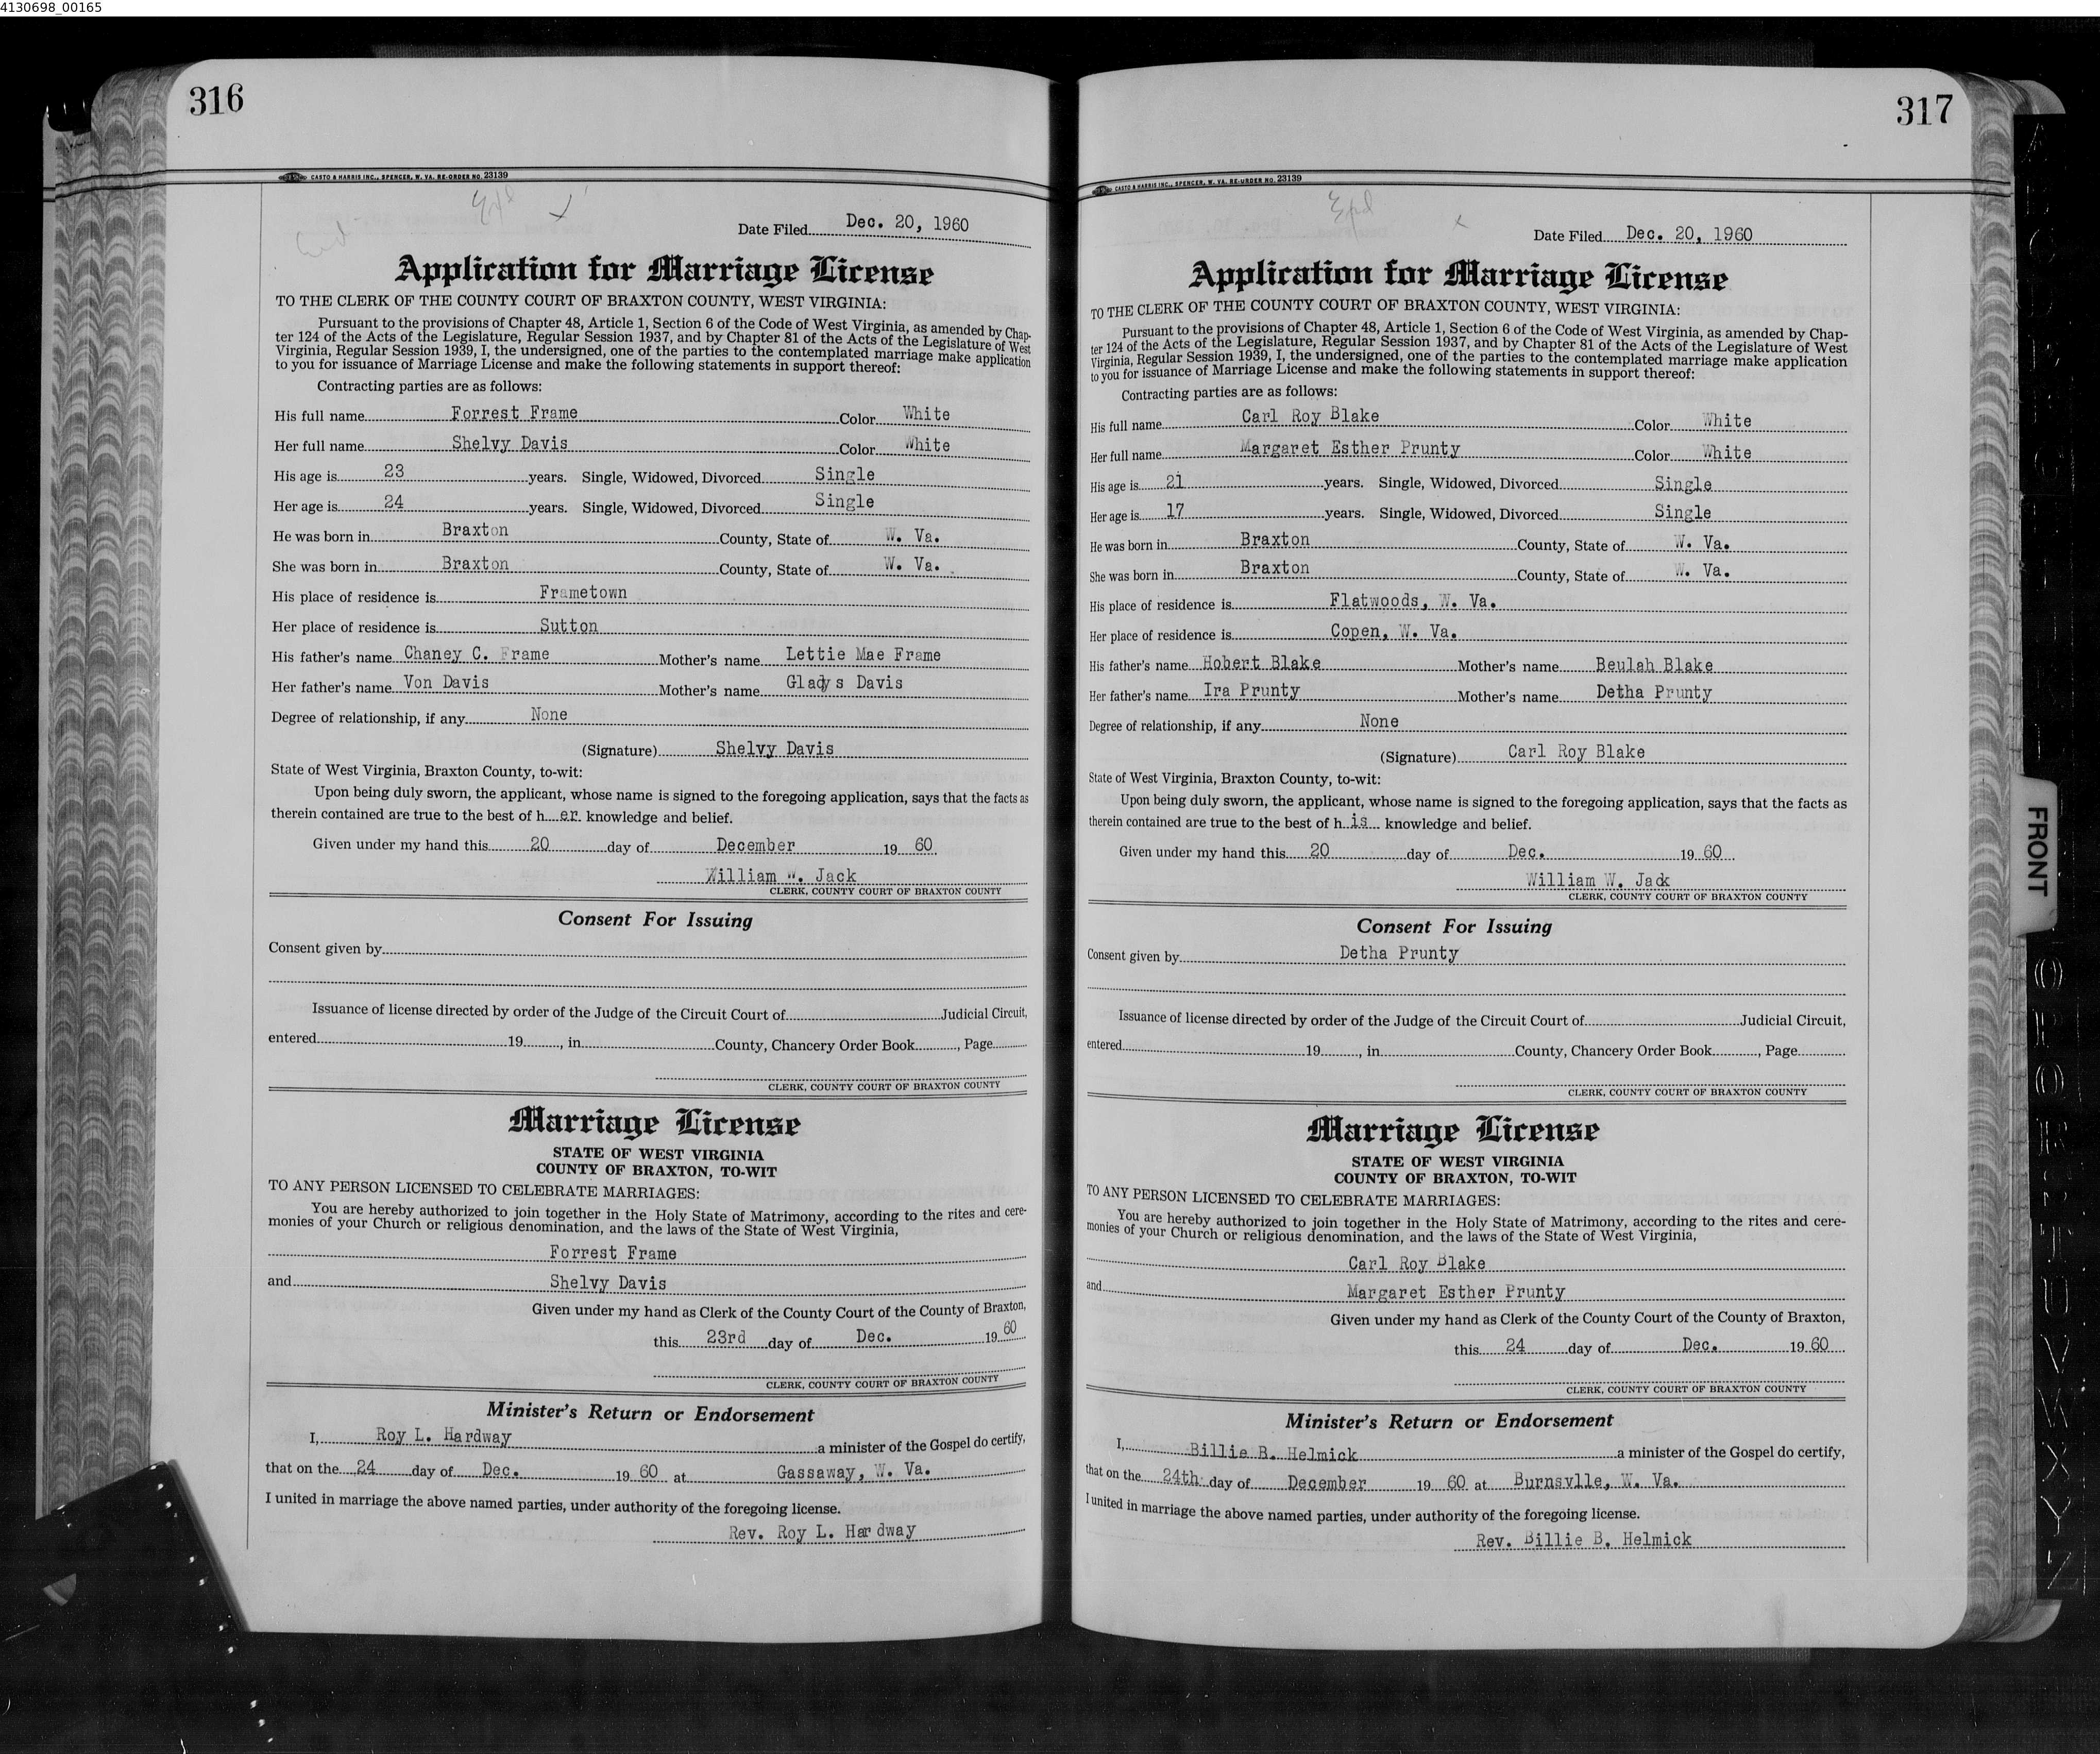 4130698_00165
316
CASTO & HARRIS INC., SPENCER, W. VA. RE-ORDER NO. 23139
Date Filed Dec. 20, 1960
Application for Marriage License
TO THE CLERK OF THE COUNTY COURT OF BRAXTON COUNTY, WEST VIRGINIA:
Pursuant to the provisions of Chapter 48, Article 1, Section 6 of the Code of West Virginia, as amended by Chap-
ter 124 of the Acts of the Legislature, Regular Session 1937, and by Chapter 81 of the Acts of the Legislature of West
Virginia, Regular Session 1939, I, the undersigned, one of the parties to the contemplated marriage make application
to you for issuance of Marriage License and make the following statements in support thereof:
Contracting parties are as follows:
His full name Forrest Frame Color White
Her full name Shelvy Davis Color White
His age is 23 years. Single, Widowed, Divorced Single
Her age is 24 years. Single, Widowed, Divorced Single
He was born in Braxton County, State of W. Va.
She was born in Braxton County, State of W. Va.
His place of residence is Frametown
Her place of residence is Sutton
His father's name Chaney C. Frame Mother's name Lettie Mae Frame
Her father's name Von Davis Mother's name Gladys Davis
Degree of relationship, if any None
(Signature) Shelvy Davis
State of West Virginia, Braxton County, to-wit:
Upon being duly sworn, the applicant, whose name is signed to the foregoing application, says that the facts as
therein contained are true to the best of h er knowledge and belief.
Given under my hand this 20 day of December 19 60
William W. Jack
CLERK, COUNTY COURT OF BRAXTON COUNTY
Consent For Issuing
Consent given by
Issuance of license directed by order of the Judge of the Circuit Court of Judicial Circuit,
entered 19 , in County, Chancery Order Book , Page
CLERK, COUNTY COURT OF BRAXTON COUNTY
Marriage License
STATE OF WEST VIRGINIA
COUNTY OF BRAXTON, TO-WIT
TO ANY PERSON LICENSED TO CELEBRATE MARRIAGES:
You are hereby authorized to join together in the Holy State of Matrimony, according to the rites and cere-
monies of your Church or religious denomination, and the laws of the State of West Virginia,
Forrest Frame
and Shelvy Davis
Given under my hand as Clerk of the County Court of the County of Braxton,
this 23rd day of Dec. 19 60
CLERK, COUNTY COURT OF BRAXTON COUNTY
Minister's Return or Endorsement
I, Roy L. Hardway a minister of the Gospel do certify,
that on the 24 day of Dec. 19 60 at Gassaway, W. Va.
I united in marriage the above named parties, under authority of the foregoing license.
Rev. Roy L. Hardway
317
CASTO & HARRIS INC., SPENCER, W. VA. RE-ORDER NO. 23139
Date Filed Dec. 20, 1960
Application for Marriage License
TO THE CLERK OF THE COUNTY COURT OF BRAXTON COUNTY, WEST VIRGINIA:
Pursuant to the provisions of Chapter 48, Article 1, Section 6 of the Code of West Virginia, as amended by Chap-
ter 124 of the Acts of the Legislature, Regular Session 1937, and by Chapter 81 of the Acts of the Legislature of West
Virginia, Regular Session 1939, I, the undersigned, one of the parties to the contemplated marriage make application
to you for issuance of Marriage License and make the following statements in support thereof:
Contracting parties are as follows:
His full name Carl Roy Blake Color White
Her full name Margaret Esther Prunty Color White
His age is 21 years. Single, Widowed, Divorced Single
Her age is 17 years. Single, Widowed, Divorced Single
He was born in Braxton County, State of W. Va.
She was born in Braxton County, State of W. Va.
His place of residence is Flatwoods, W. Va.
Her place of residence is Copen, W. Va.
His father's name Hobert Blake Mother's name Beulah Blake
Her father's name Ira Prunty Mother's name Detha Prunty
Degree of relationship, if any None
(Signature) Carl Roy Blake
State of West Virginia, Braxton County, to-wit:
Upon being duly sworn, the applicant, whose name is signed to the foregoing application, says that the facts as
therein contained are true to the best of h is knowledge and belief.
Given under my hand this 20 day of Dec. 19 60
William W. Jack
CLERK, COUNTY COURT OF BRAXTON COUNTY
Consent For Issuing
Consent given by Detha Prunty
Issuance of license directed by order of the Judge of the Circuit Court of Judicial Circuit,
entered 19 , in County, Chancery Order Book , Page
CLERK, COUNTY COURT OF BRAXTON COUNTY
Marriage License
STATE OF WEST VIRGINIA
COUNTY OF BRAXTON, TO-WIT
TO ANY PERSON LICENSED TO CELEBRATE MARRIAGES:
You are hereby authorized to join together in the Holy State of Matrimony, according to the rites and cere-
monies of your Church or religious denomination, and the laws of the State of West Virginia,
Carl Roy Blake
and Margaret Esther Prunty
Given under my hand as Clerk of the County Court of the County of Braxton,
this 24 day of Dec. 19 60
CLERK, COUNTY COURT OF BRAXTON COUNTY
Minister's Return or Endorsement
I, Billie B. Helmick a minister of the Gospel do certify,
that on the 24th day of December 19 60 at Burnsvlle, W. Va.
I united in marriage the above named parties, under authority of the foregoing license.
Rev. Billie B. Helmick
FRONT